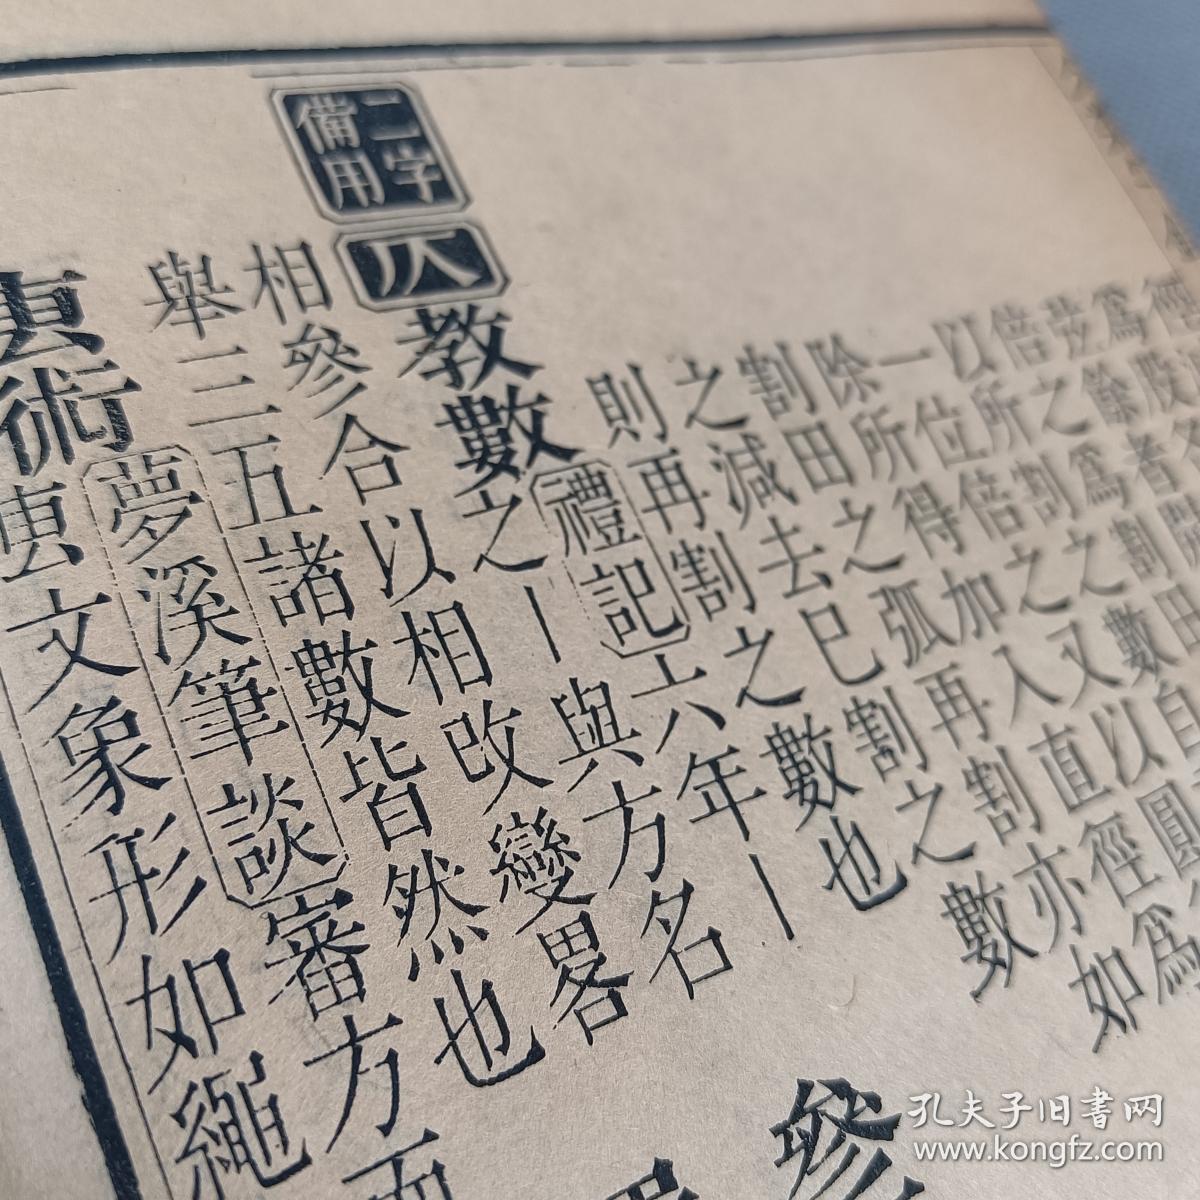 徑
爲股各
弦餘者
倍之爲割田
以所割之數自
一位倍之又以圓
除所得加入直徑爲
割田之弧再割亦如
之減去已割之數
則再割之數也
二字
備用
仄
教數
禮記六年丨
之丨與方名
相參合以相改變畧
舉三五諸數皆然也
叀術
夢溪筆談審方面
叀文象形如繩
參
孔夫子旧書网
www.kongfz.com